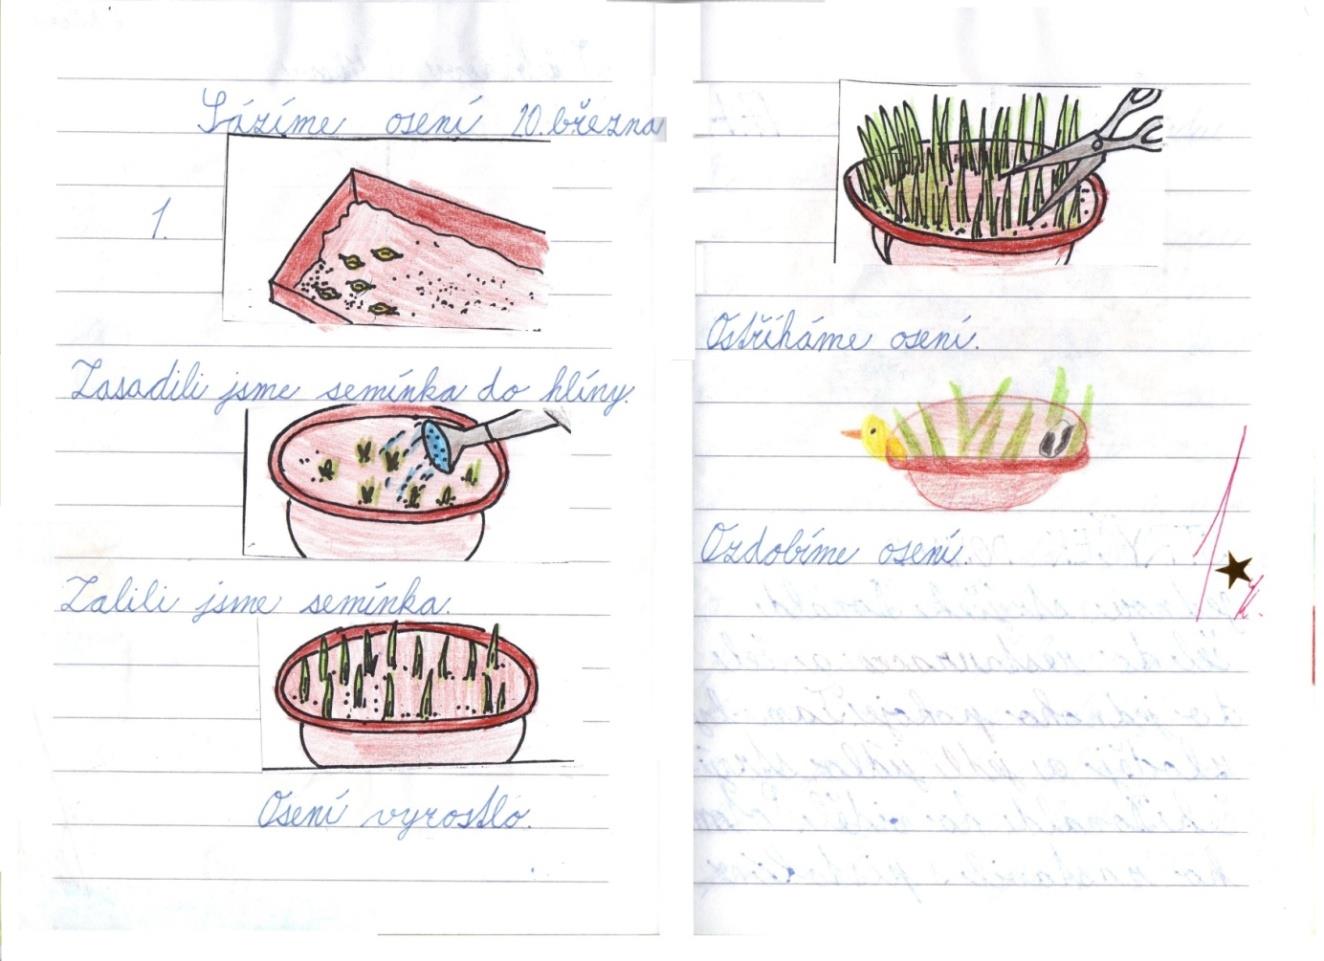 Sázíme osení 20. března
1.
Zasadili jsme semínka do hlíny.
Zalili jsme semínka.
Osení vyrostlo.
Ostříháme osení.
Ozdobíme osení.
1